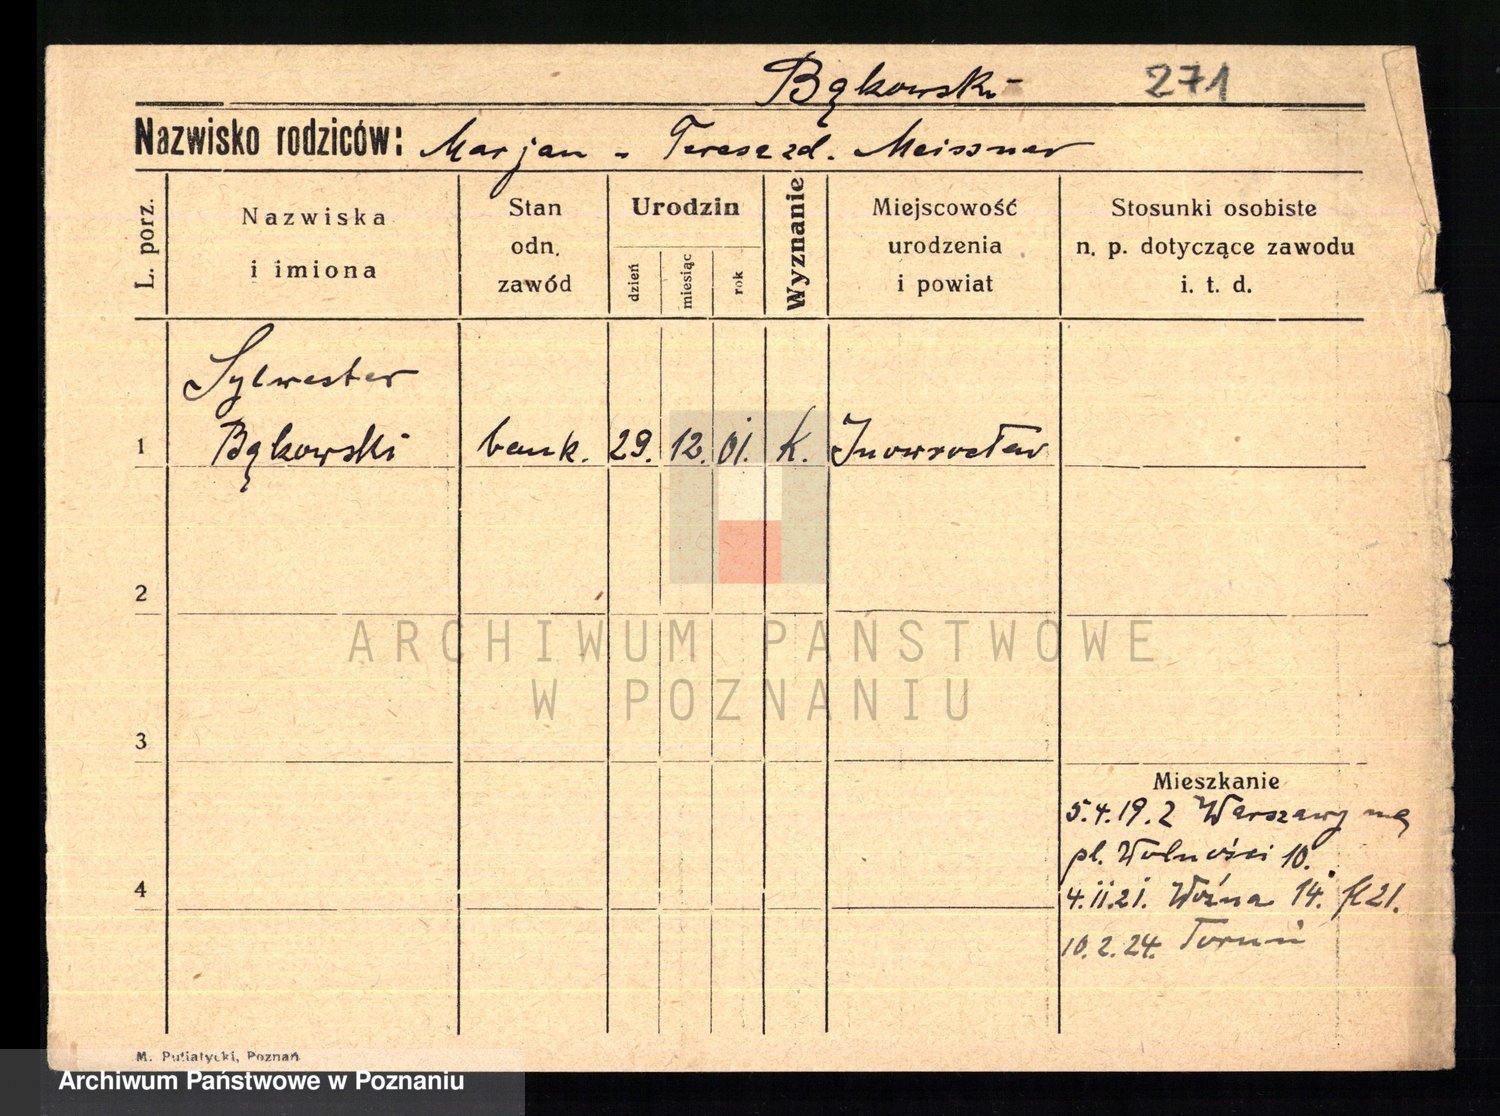 Bąkowski 271
Nazwisko rodziców: Marjan - Teresa zd. Meissner
L. porz.
Nazwiska
i imiona
Stan
odn.
zawód
Urodzin
dzień
miesiąc
rok
Wyznanie
Miejscowość
urodzenia
i powiat
Stosunki osobiste
n. p. dotyczące zawodu
i. t. d.
Sylwester
1 Bąkowski bank. 29. 12. 01. K. Inowrocław
2
ARCHIWUM PAŃSTWOWE
W POZNANIU
3
Mieszkanie
5.4.19. z Warszawy na
pl. Wolności 10.
4
4.11.21. Woźna 14. 21.
10.2.24. Toruń
M. Putiatycki, Poznań
Archiwum Państwowe w Poznaniu